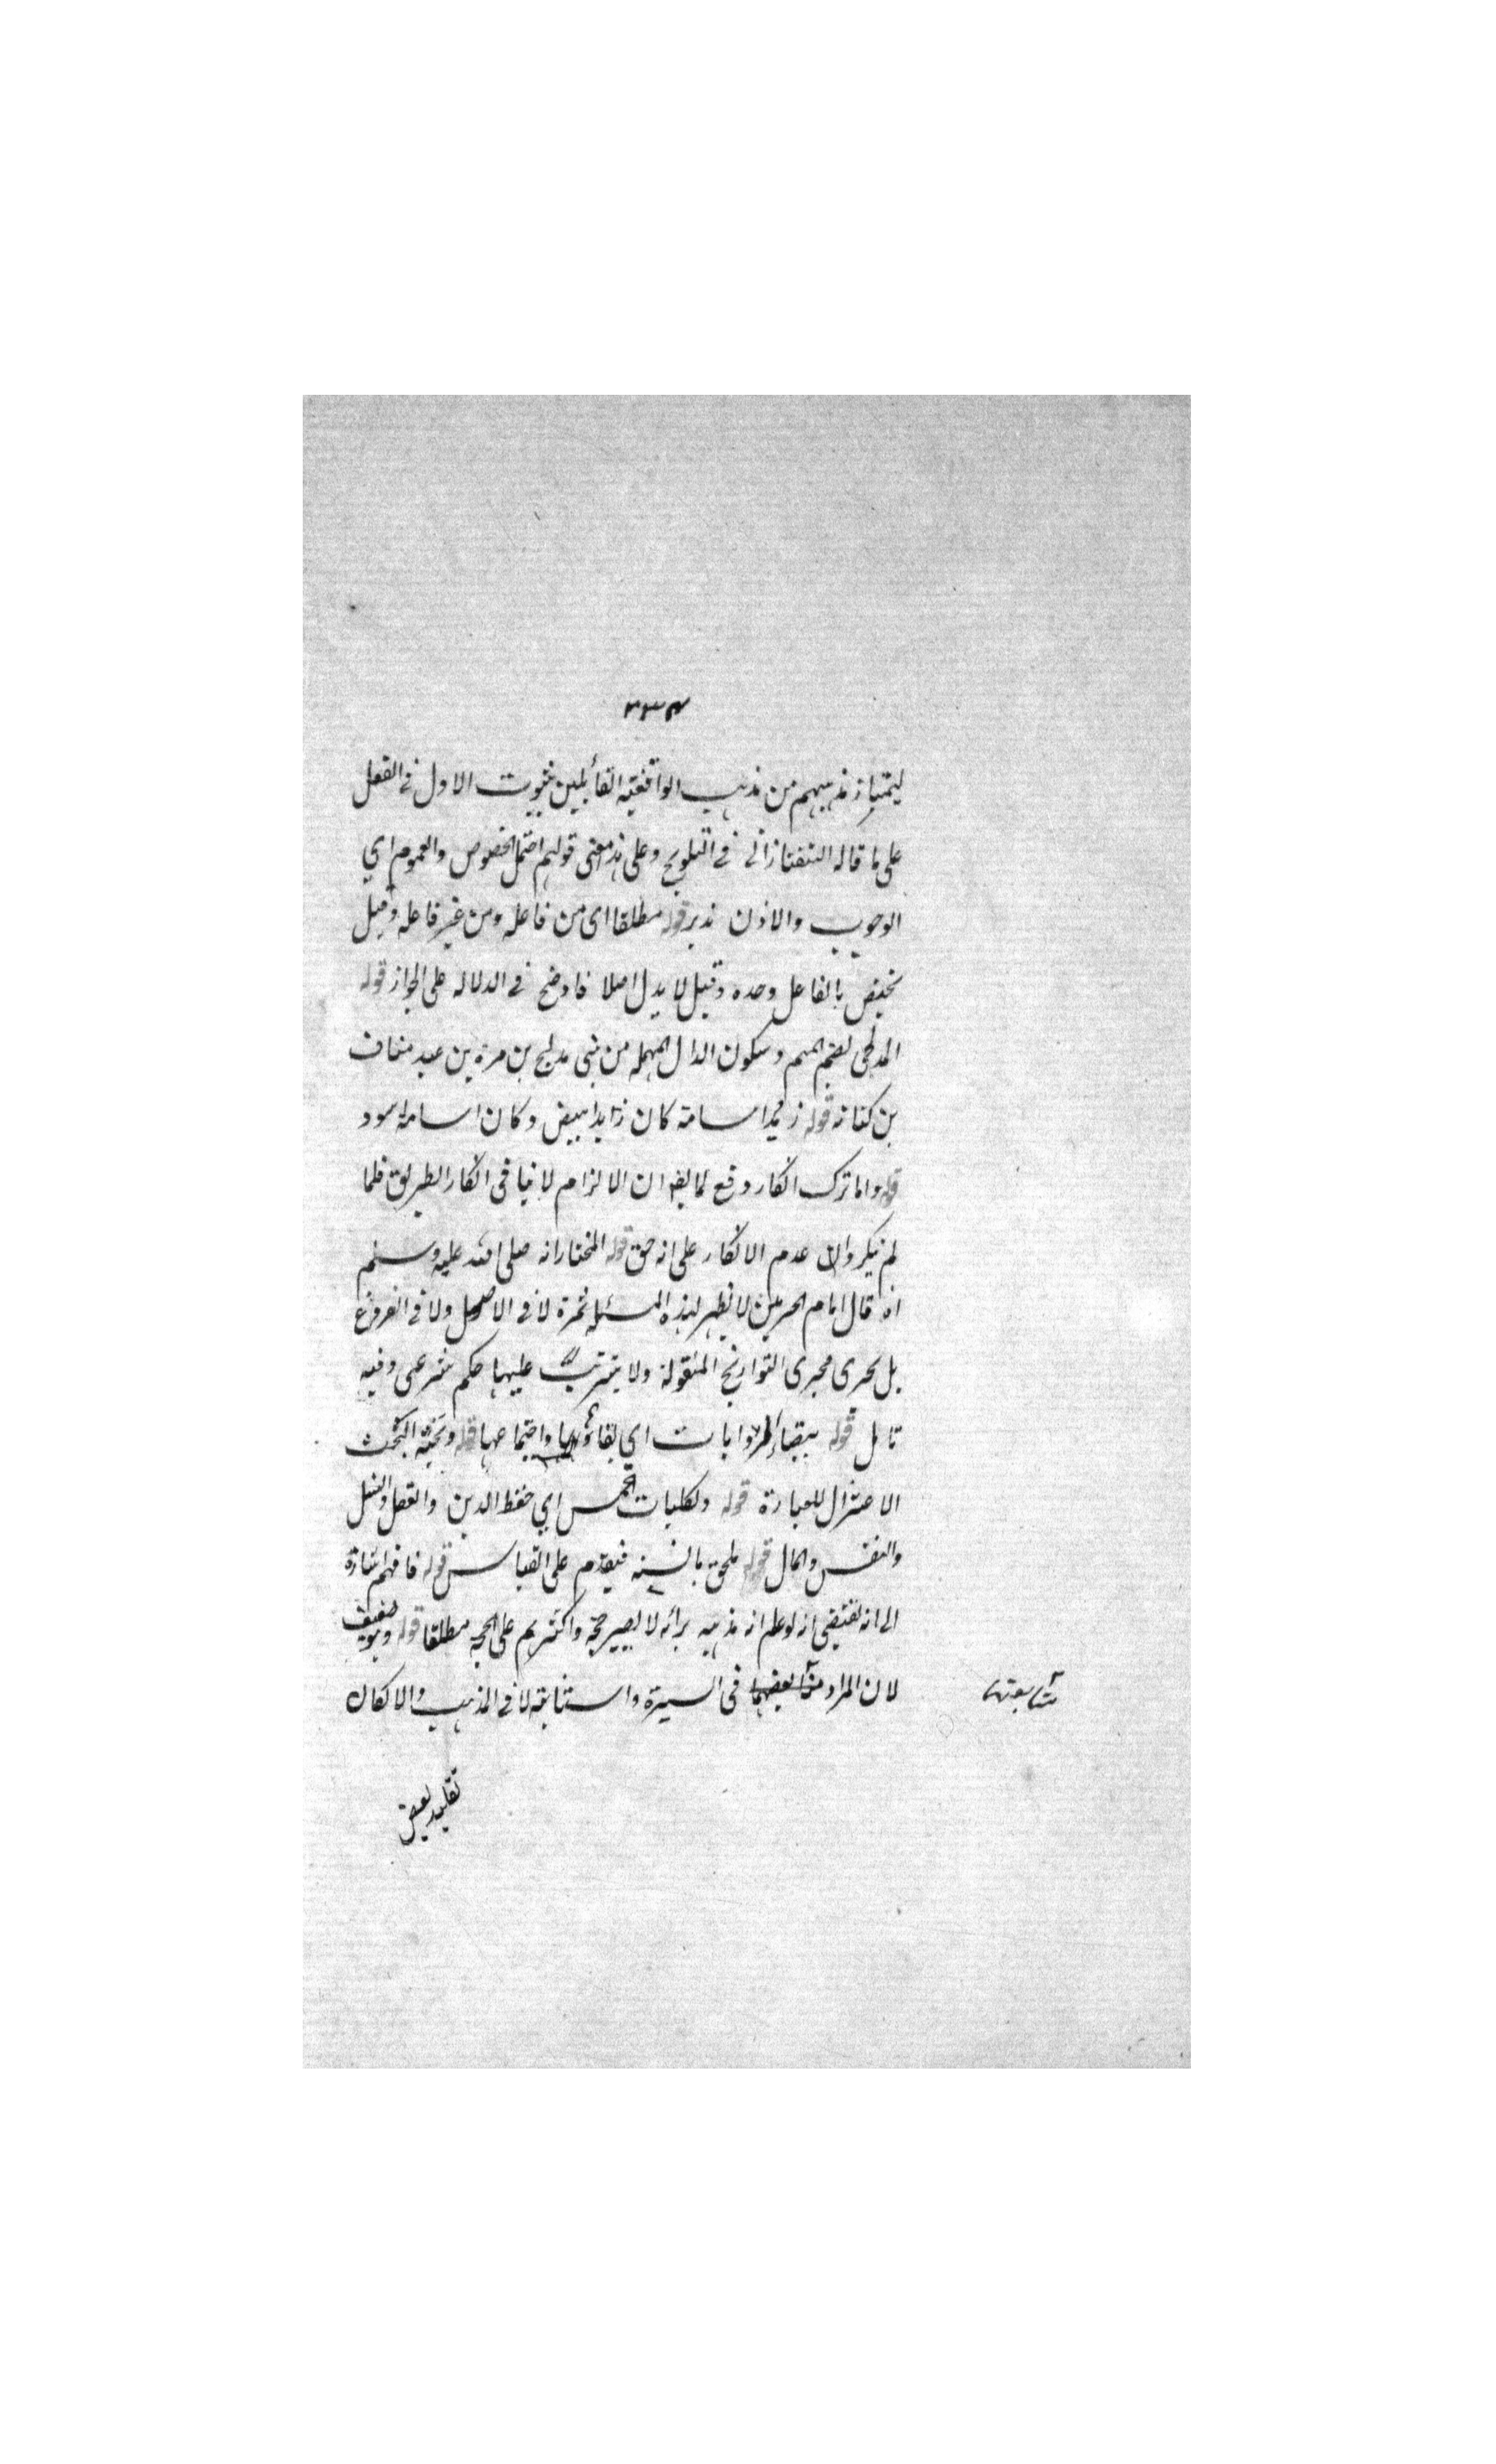 ٣٣٤
ليمتياز مذهبهم من مذهب الواقفية القائلين بثبوت الاول في الفعل
على ما قاله التفتازاني في التلويح وعلى هذا معنى قولهم احتمل الخصوص والعموم اي
الوجوب والاذن تدبر قوله مطلقا اى من فاعله ومن غير فاعله وقيل
يختص بالفاعل وحده وقيل لا يدل اصلا فاوضح في الدلاله على الجواز قوله
المدلجى بضم الميم وسكون الدال المهملة من بنى مدلج بن مرة بن عبد مناف
بن كنانه قوله زيدا اسامة كان زيد ابيض وكان اسامة اسود
قوله واما ترك انكار دفع لما يقال ان الالزام لا ينافى انكار الطريق فلما
لم ينكر دل عدم الانكار على انه حق قوله المختار انه صلى الله عليه وسلم
اه قال امام الحرمين لا يظهر لهذه المسئلة ثمرة لا فى الاصول ولا فى الفروع
بل يجرى مجرى التواريخ المنقولة ولا يترتب عليها حكم شرعى وفيه
تامل قوله ببقاء الروايات اي بقاؤها واجتماعها قوله
الاعتزال للعبارة قوله ولكليات الخمس اي حفظ الدين والعقل والنسل
والنفس والمال قوله ملحق بالسنه فيقدم على القياس قوله فافهم اشارة
الى انه يقتضي انه لو علم انه مذهبه برأيه لا يصير حجة واكثرهم على الحجية مطلقا قوله وهو ضعيف
لان المراد متابعتهما فى السيرة والسياسة لا فى المذهب والا لكان
متابعتهما
تقليد بعض